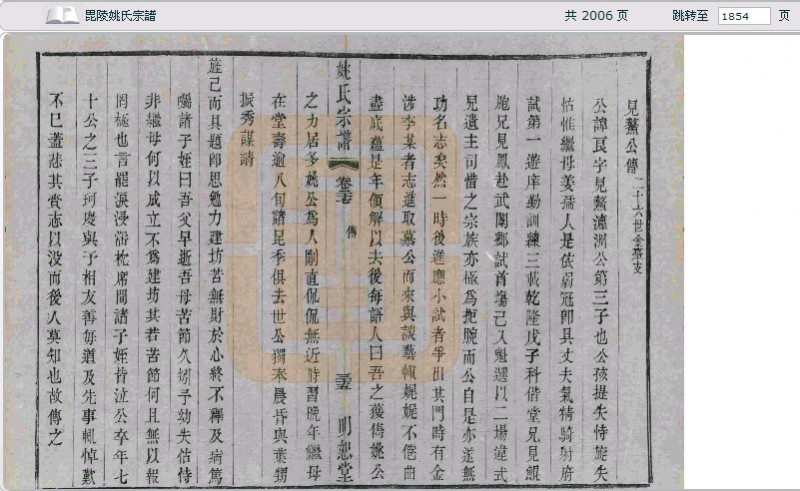 毘陵姚氏宗譜
共 2006 页
跳转至 1854 页
見鰲公傳 二十六世金墅支
公諱良字見鰲瀛洲公第三子也公孩提失恃旋失
怙惟繼母姜孺人是依弱冠即具丈夫氣精騎射府
試第一遊庠勤訓練三載乾隆戊子科偕堂兄見鯤
胞兄見鳳赴武闈鄉試首場已入魁選以二場違式
見遺主司惜之宗族亦極為扼腕而公自是亦遂無
功名志矣然一時後進應小試者爭出其門時有金
涉李某者志進取慕公而來與談藝輒娓娓不倦曲
盡底蘊是年領解以去後每語人曰吾之獲儁姚公
姚氏宗譜
卷 傳
明恕堂
之力居多姚公為人剛直侃侃無近時習晚年繼母
在堂壽逾八旬諸昆季俱去世公獨奉晨昏與葉甥
振秀謀請
旌已而具題即思勉力建坊苦無財於心終不釋及病篤
囑諸子姪曰吾父早逝吾母苦節久矧予幼失怙恃
非繼母何以成立不為建坊其若苦節何且無以報
罔極也言罷淚浸淫枕席間諸子姪皆泣公卒年七
十公之三子珂慶與予相友善每道及先事輒悼歎
不已蓋悲其賫志以沒而後人莫知也故傳之